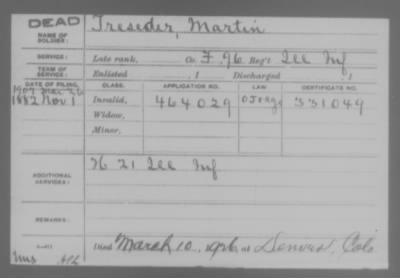 DEAD
NAME OF SOLDIER: Treseder, Martin
SERVICE: Late rank, Co. F, 96 Reg't Ill Inf
TERM OF SERVICE: Enlisted , 1 Discharged , 1
DATE OF FILING. CLASS. APPLICATION NO. LAW CERTIFICATE NO.
1907 Mar 26
1882 Nov 1 Invalid, 464029 331049
Widow,
Minor,
ADDITIONAL SERVICES: K 21 Ill Inf
REMARKS:
Died March 10, 1926 at Denver, Colo